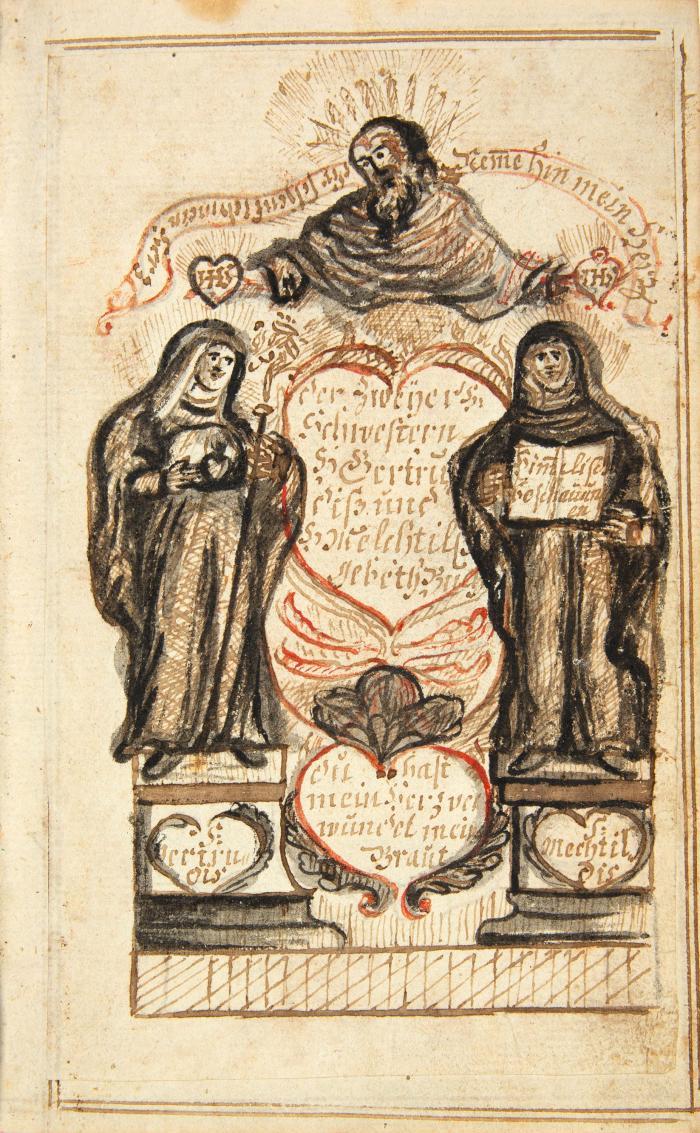 Neme hin mein Hertz
IHS
IHS
der Zweÿer H
Schwestern
H Gertru
dis und
H Mechtils
gebeth Buch
Himlische
Beschauun
en
Du hast
mein Herz ver
wundet mein
Braut
S
Gertru
dis
S
Mechtil
dis